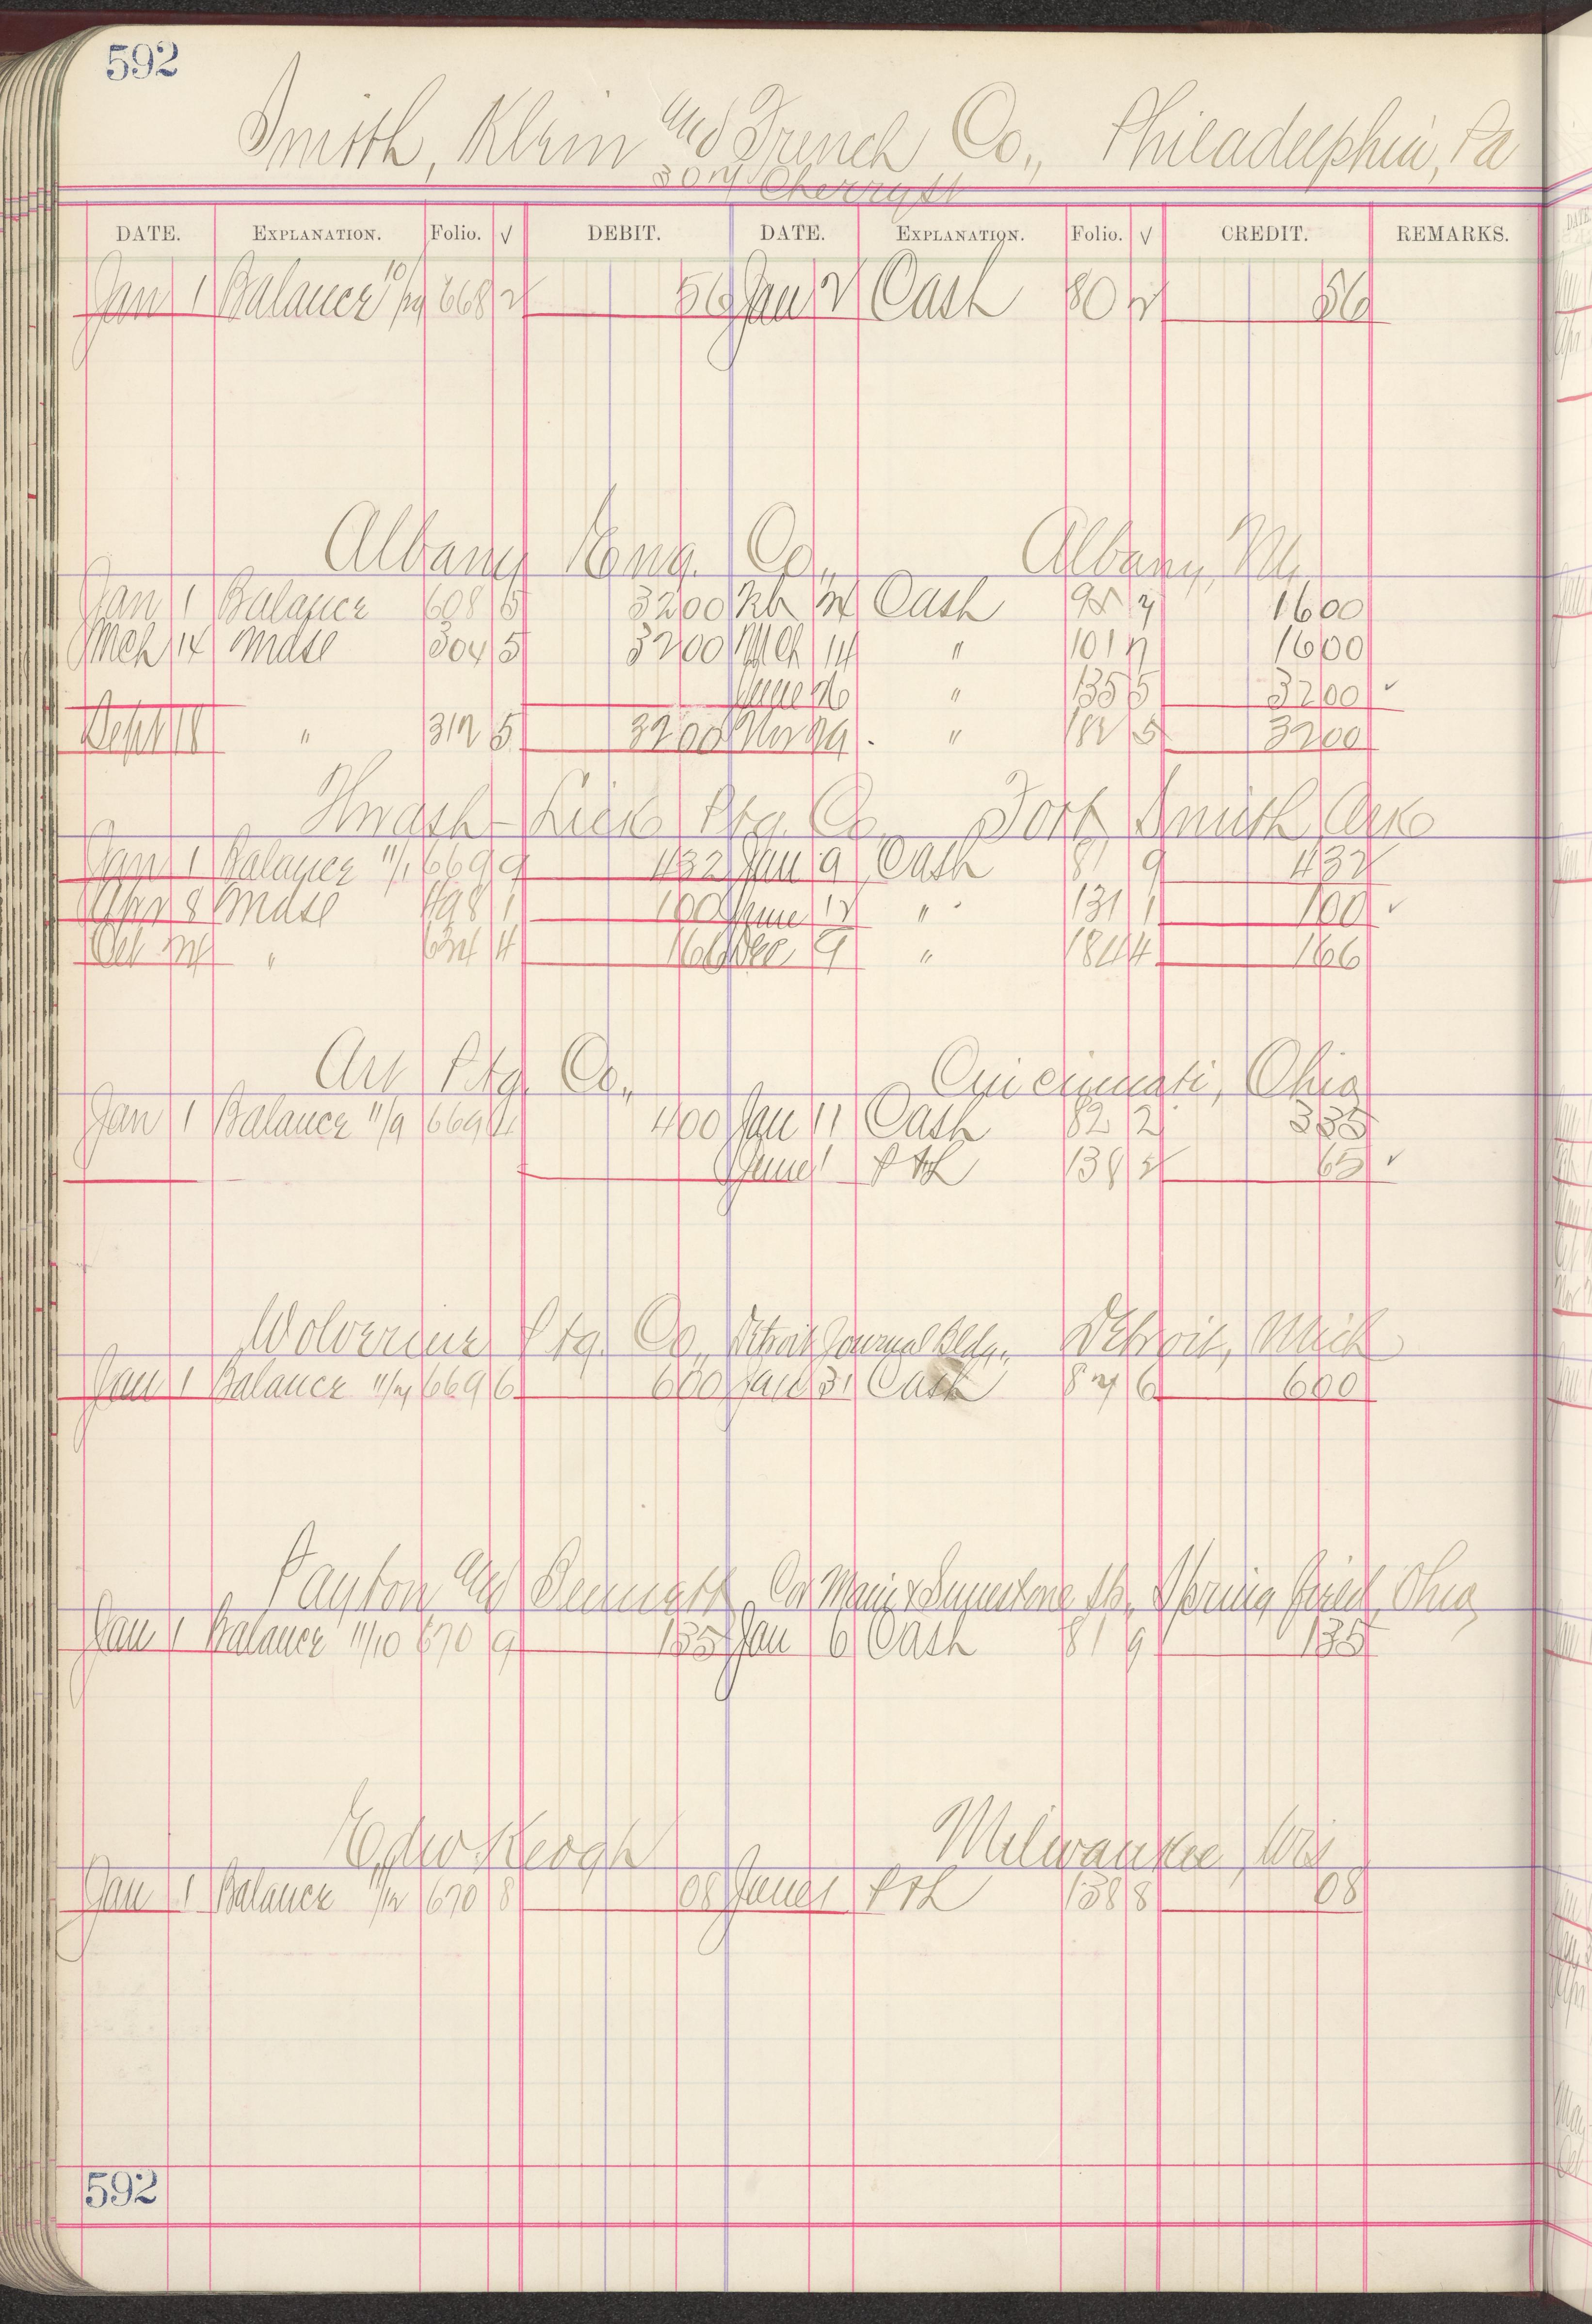 592
Smith, Klein and French Co., Philadelphia, Pa
Cherry St
DATE. EXPLANATION. Folio. √ DEBIT. DATE. EXPLANATION. Folio. √ CREDIT. REMARKS.
Jan 1 Balance 668 2 56 Jan 2 Cash 80 2 56
Albany Eng. Co., Albany, Ny
Jan 1 Balance 608 5 3200 Cash 1600
Mch 14 Mdse 304 5 3200 Mch 14 " 101 1600
June " 135 5 3200 ✓
Sept 18 " 312 5 3200 Nov 29 " 182 5 3200
Ptg. Co. Fort Smith Ark
Jan 1 Balance 11/1 669 9 432 Jan 9 Cash 81 9 432
Apr 8 Mdse 498 1 100 June 12 " 131 1 100 ✓
Oct 4 166 Dec 9 " 184 4 166
Art Ptg. Co., Cincinnati, Ohio
Jan 1 Balance 11/9 669 2 400 Jan 11 Cash 82 2 335
June 1 P & L 138 2 65 ✓
Wolverine Ptg. Co., Detroit Journal Bldg. Detroit, Mich
Jan 1 Balance 669 6 600 Jan 31 Cash 87 6 600
and Cor Main & Limestone St. Spring field Ohio
Jan 1 Balance 11/10 670 9 135 Jan 6 Cash 81 9 135
Edw Keogh Milwaukee, Wis
Jan 1 Balance 11/12 670 8 08 June 1 P & L 138 8 08
592